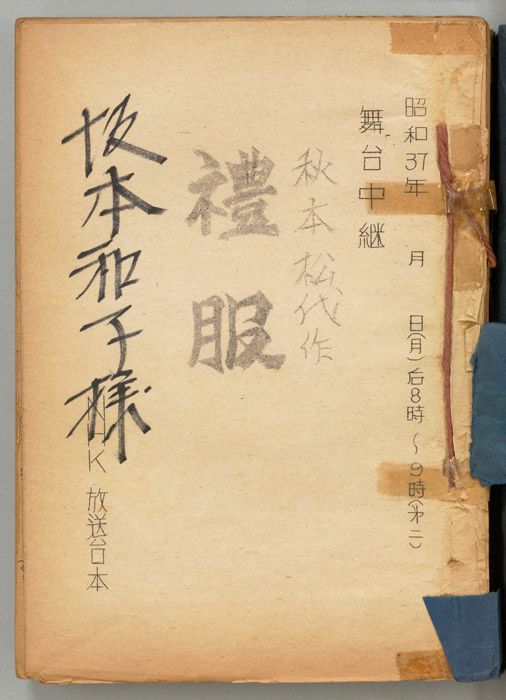 昭和37年 月 日(月)后8時～9時(才二)
舞台中継
秋本松代作
禮服
坂本和子様
NHK 放送台本